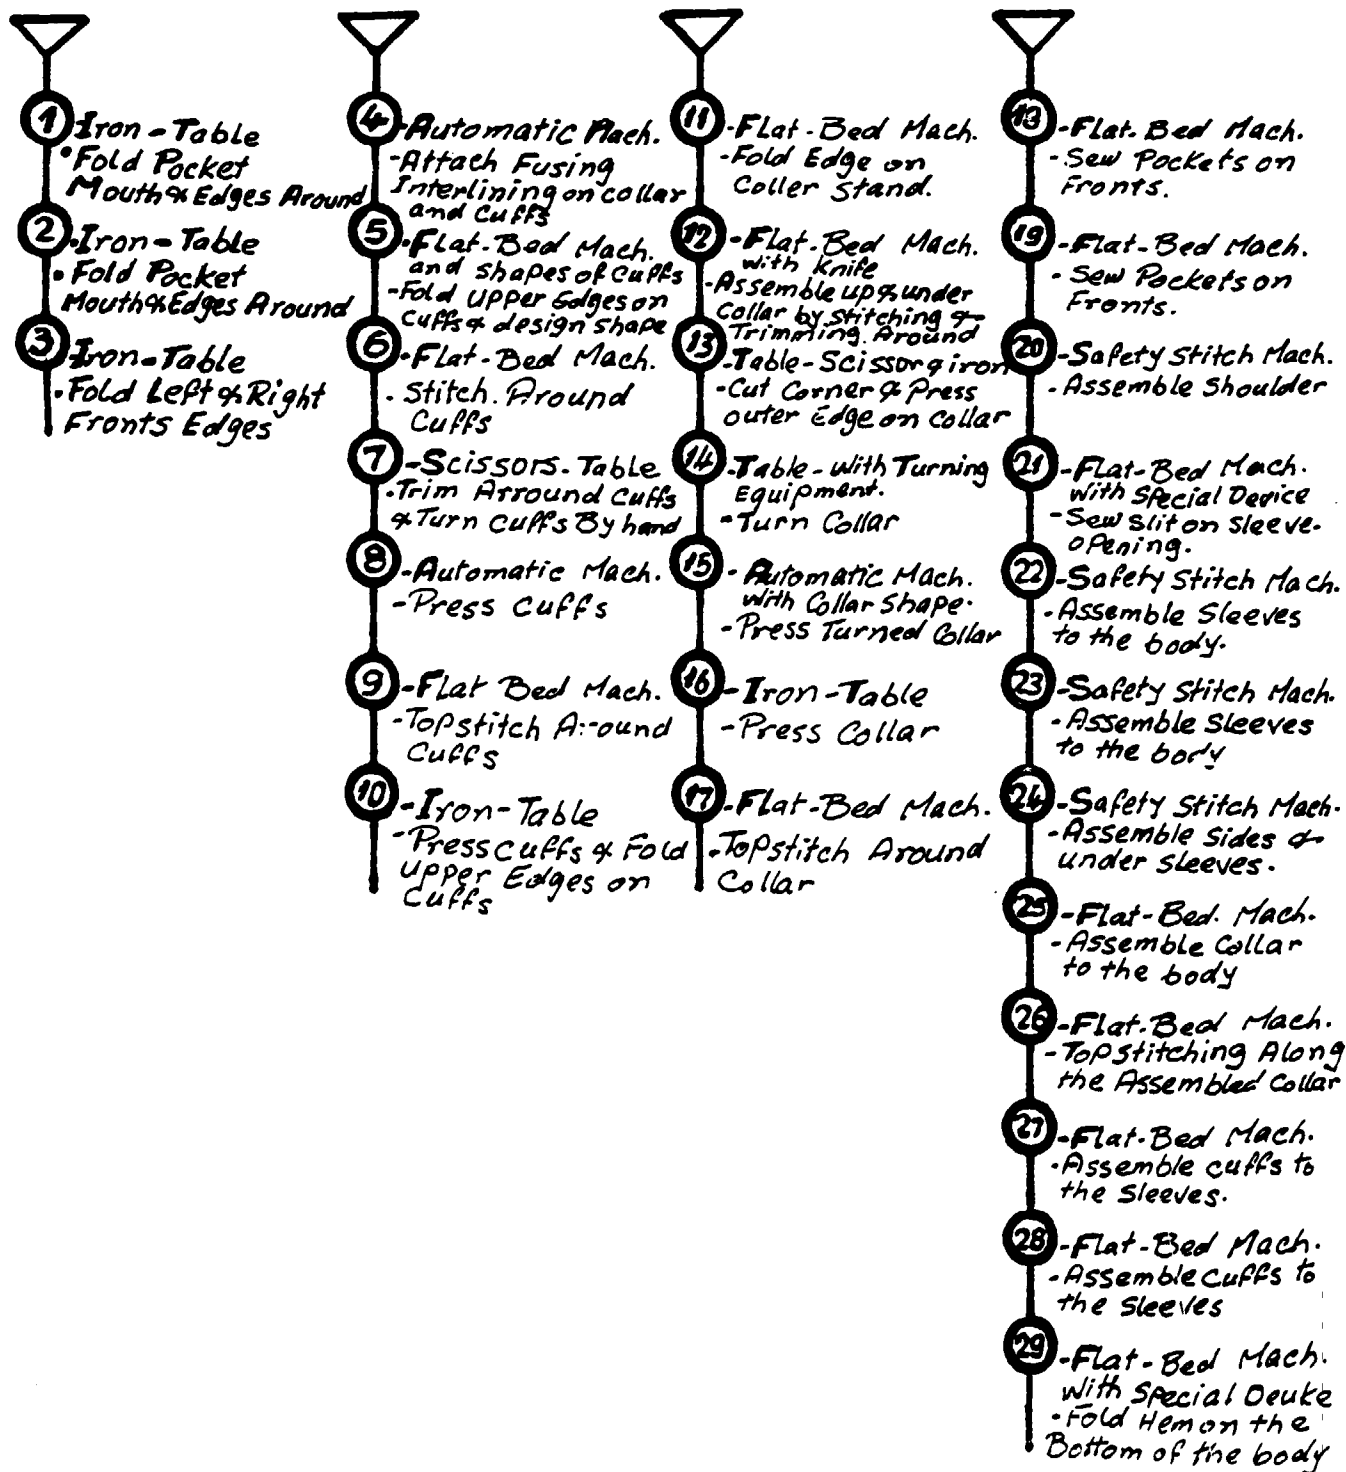 1
-Iron-Table
•Fold Pocket
Mouth & Edges Around
2
-Iron-Table
•Fold Pocket
Mouth & Edges Around
3
-Iron-Table
•Fold Left & Right
Fronts Edges
4
-Automatic Mach.
-Attach Fusing
Interlining on collar
and Cuffs
5
-Flat-Bed Mach.
and shapes of Cuffs
-Fold Upper Edges on
Cuffs & design shape
6
-Flat-Bed Mach.
-Stitch. Around
Cuffs
7
-Scissors-Table
-Trim Arround Cuffs
& Turn Cuffs By hand
8
-Automatic Mach.
-Press Cuffs
9
-Flat Bed Mach.
-Topstitch Around
Cuffs
10
-Iron-Table
-Press Cuffs & Fold
Upper Edges on
Cuffs
11
-Flat-Bed Mach.
-Fold Edge on
Coller Stand.
12
-Flat-Bed Mach.
with Knife
-Assemble up & under
Collar by stitching &
Trimming Around
13
-Table-Scissor & iron
-Cut Corner & Press
outer Edge on Collar
14
-Table-With Turning
Equipment.
-Turn Collar
15
-Automatic Mach.
with Collar Shape.
-Press Turned Collar
16
-Iron-Table
-Press Collar
17
-Flat-Bed Mach.
-Topstitch Around
Collar
18
-Flat-Bed Mach.
-Sew Pockets on
Fronts.
19
-Flat-Bed Mach.
-Sew Pockets on
Fronts.
20
-Safety Stitch Mach.
-Assemble Shoulder
21
-Flat-Bed Mach.
with Special Device
-Sew Slit on Sleeve-
opening.
22
-Safety Stitch Mach.
-Assemble Sleeves
to the body.
23
-Safety Stitch Mach.
-Assemble Sleeves
to the body
24
-Safety Stitch Mach.
-Assemble Sides &
under sleeves.
25
-Flat-Bed. Mach.
-Assemble Collar
to the body
26
-Flat-Bed Mach.
-Topstitching Along
the Assembled Collar
27
-Flat-Bed Mach.
-Assemble cuffs to
the Sleeves.
28
-Flat-Bed Mach.
-Assemble Cuffs to
the Sleeves
29
-Flat-Bed Mach.
With Special Deuke
-Fold Hem on the
Bottom of the body